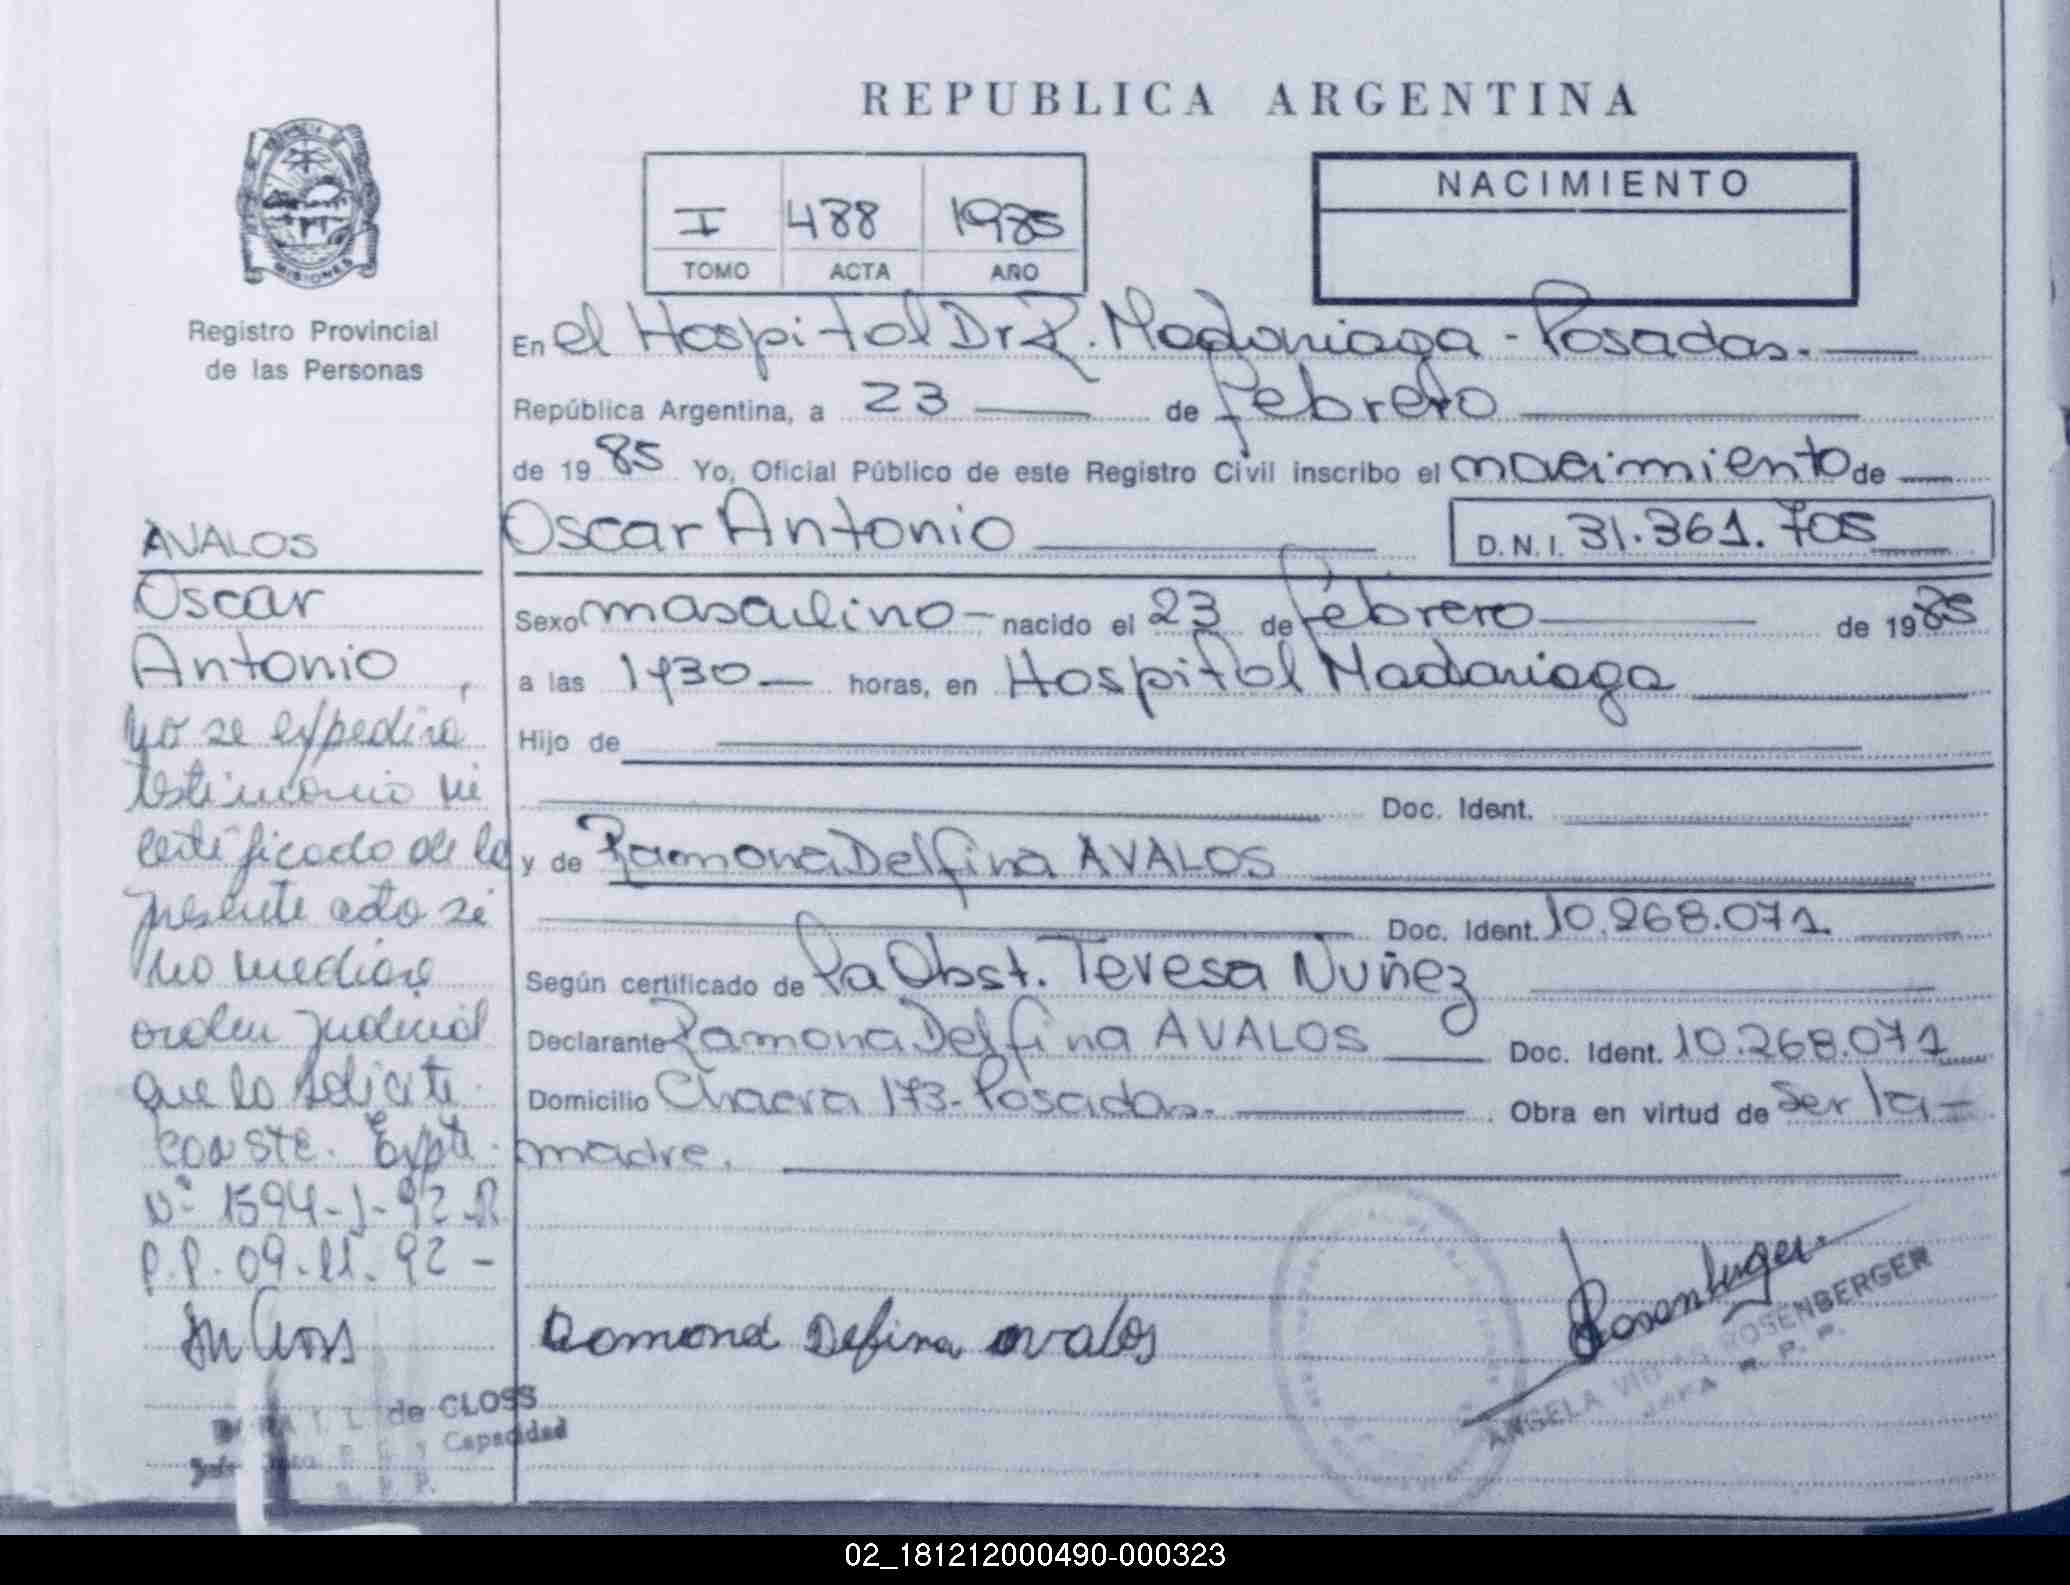 REPUBLICA ARGENTINA
PROVINCIA DE
MISIONES
Registro Provincial
de las Personas
I 488 1985
TOMO ACTA AÑO
NACIMIENTO
En el Hospital Dr R. Madariaga - Posadas.
República Argentina, a 23 de febrero
de 1985 Yo, Oficial Público de este Registro Civil inscribo el nacimiento de
Oscar Antonio D.N.I. 31.361.705
Sexo masculino - nacido el 23 de febrero de 1985
a las 1730 horas, en Hospital Madariaga
Hijo de
Doc. Ident.
y de Ramona Delfina AVALOS
Doc. Ident. 10.268.071
Según certificado de la Obst. Teresa Nuñez
Declarante Ramona Delfina AVALOS Doc. Ident. 10.268.071
Domicilio Chacra 173 - Posadas. Obra en virtud de ser la -
madre.
AVALOS
Oscar
Antonio
No se expedirá
testimonio ni
certificado de la
presente acta si
no mediare
orden judicial
que lo solicite.
Conste. Expte.
Nº 1594-J-92-R
P.P. 09.11.92 -
Ramona Delfina avalos
Rosenberger
ANGELA ROSENBERGER
R. P. P.
de CLOSS
y Capacidad
R. P. P.
02_181212000490-000323